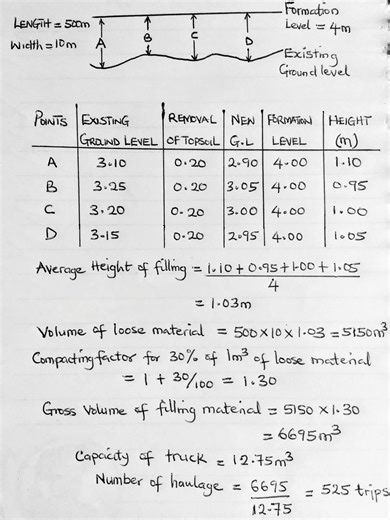 Formation
LENGTH = 500m
Level = 4m
Width = 10m
A
B
C
D
Existing
Ground level
POINTS EXISTING REMOVAL NEW FORMATION HEIGHT
GROUND LEVEL OF TOPSOIL G.L LEVEL (m)
A 3.10 0.20 2.90 4.00 1.10
B 3.25 0.20 3.05 4.00 0.95
C 3.20 0.20 3.00 4.00 1.00
D 3.15 0.20 2.95 4.00 1.05
Average Height of filling = 1.10 + 0.95 + 1.00 + 1.05
4
= 1.03m
Volume of loose material = 500 × 10 × 1.03 = 5150m³
Compacting factor for 30% of 1m³ of loose material
= 1 + 30/100 = 1.30
Gross Volume of filling material = 5150 × 1.30
= 6695m³
Capacity of truck = 12.75m³
Number of haulage = 6695 = 525 trips
12.75